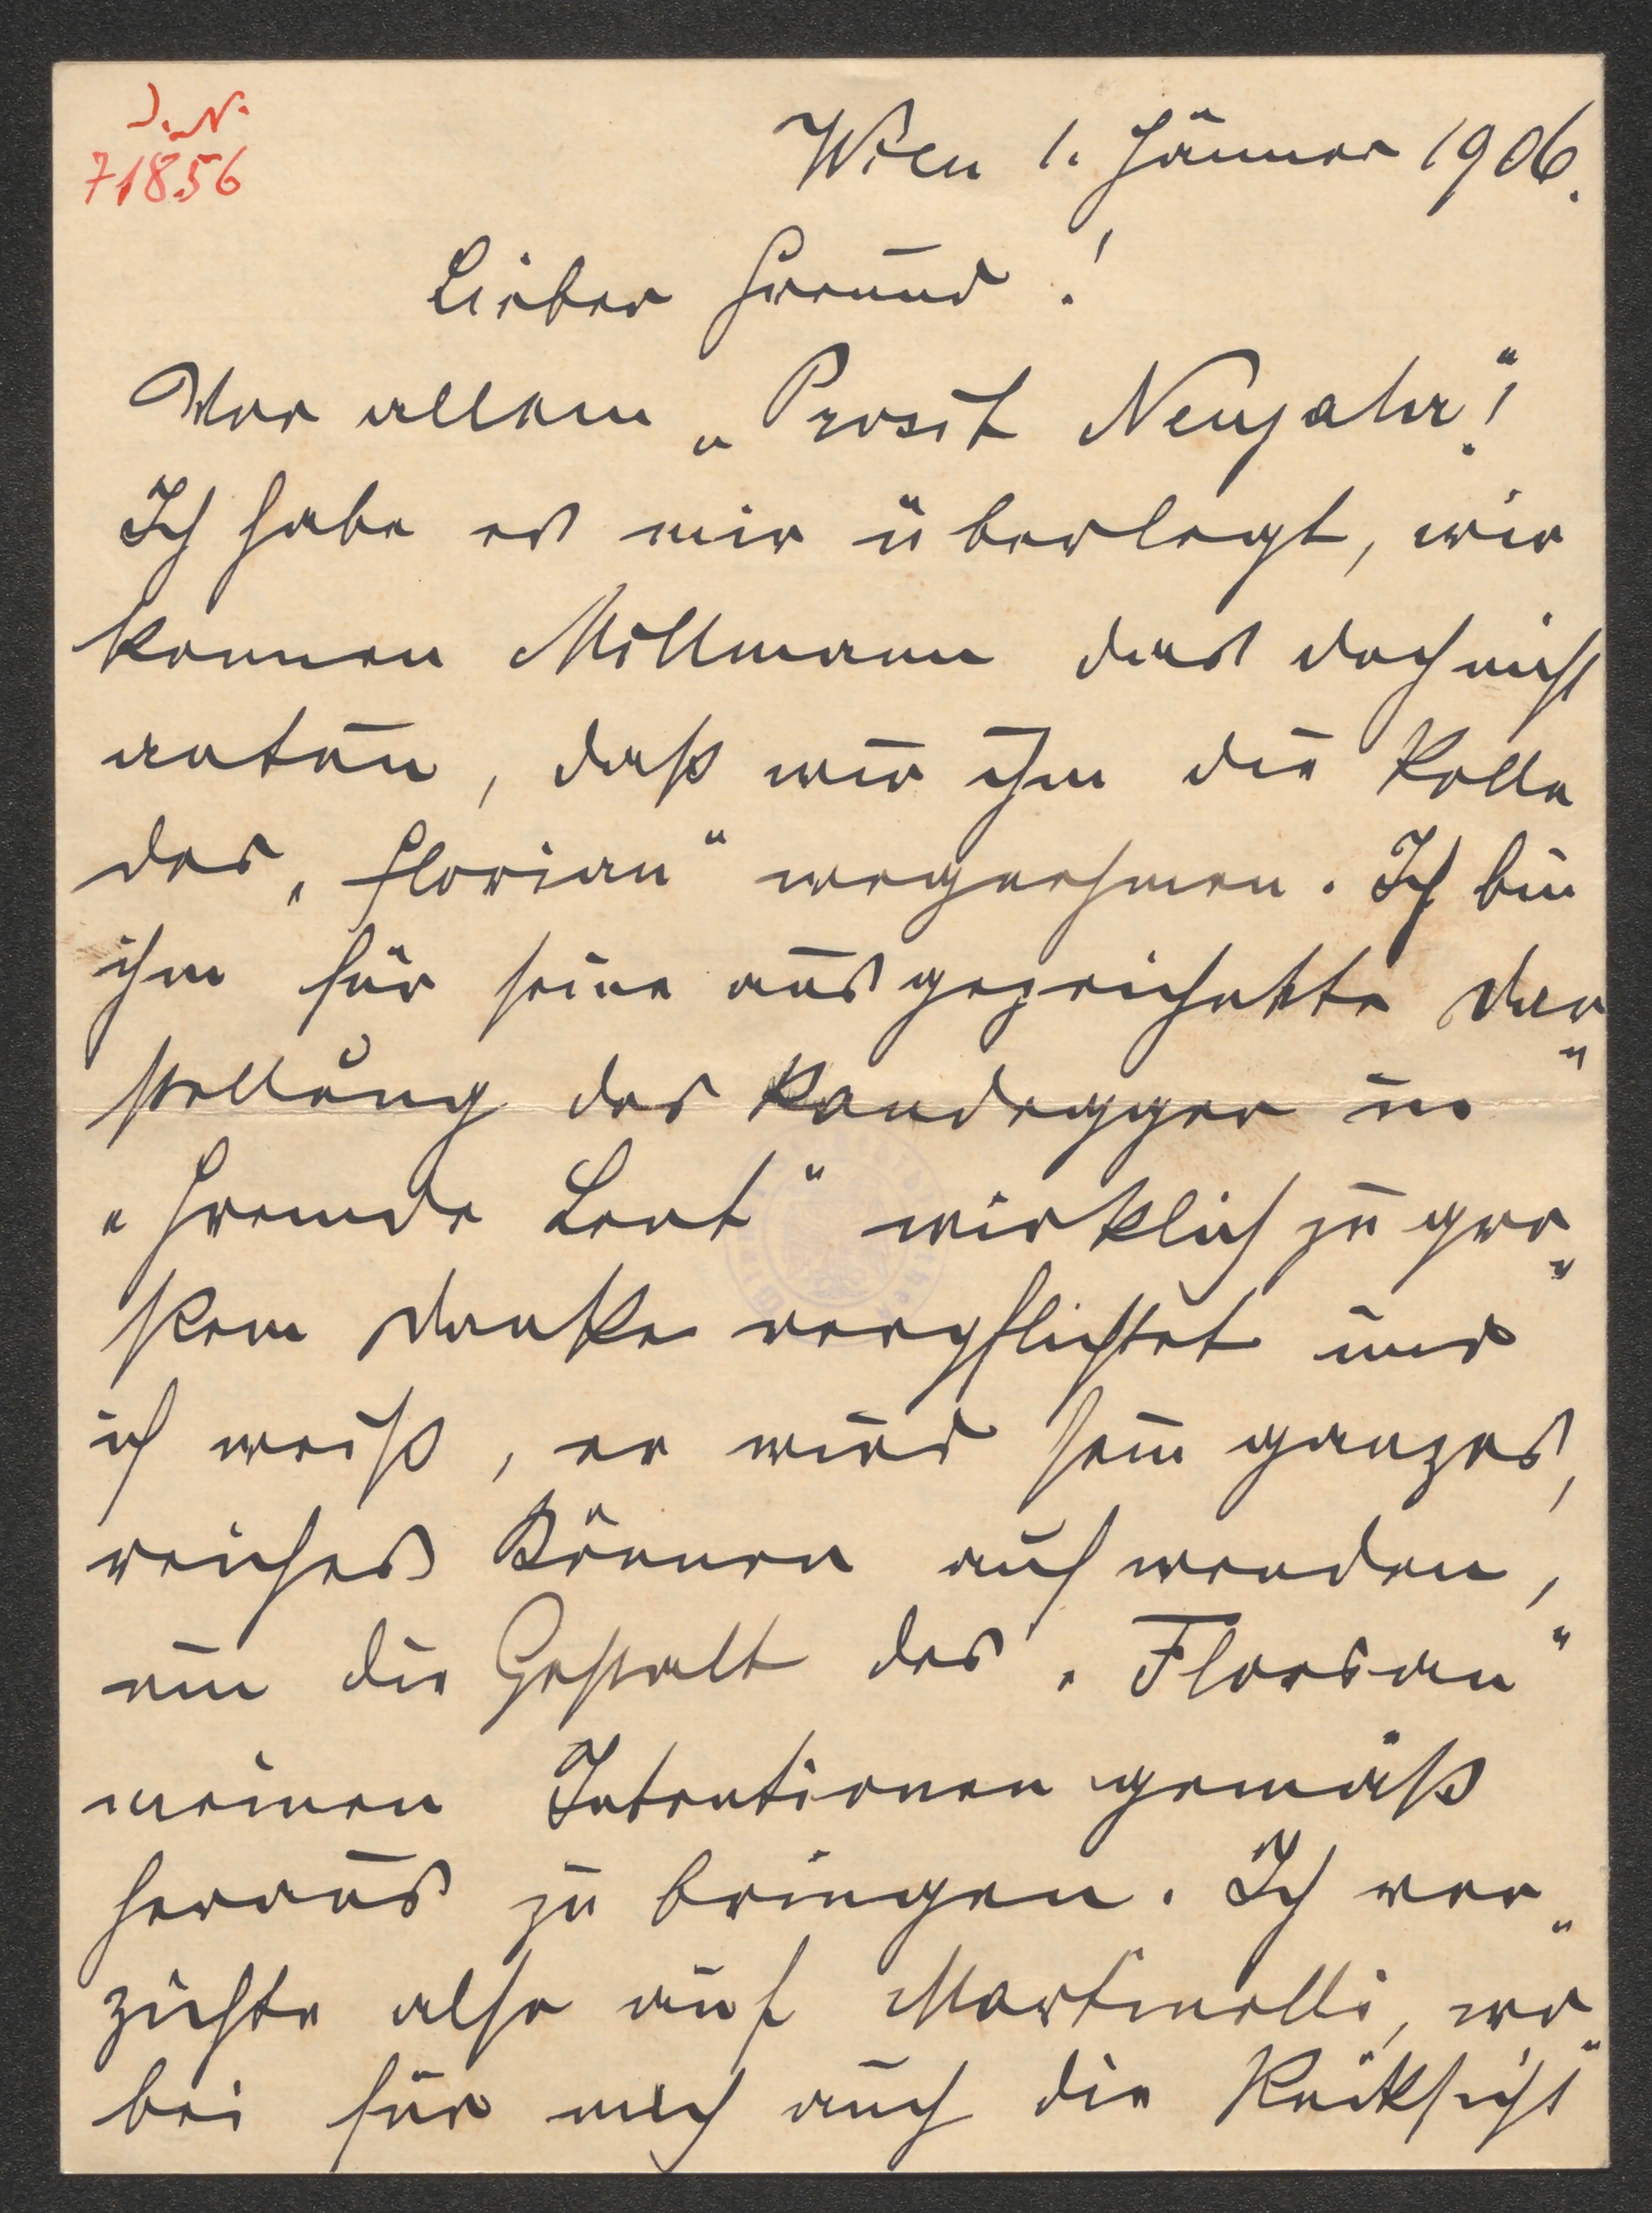 J. N.
71856
Wien 1. Jänner 1906.
Lieber Freund!
Vor allem „Prosit Neujahr“!
Ich habe es mir überlegt, wir
können Millmann das doch nicht
antun, daß wir ihm die Rolle
des „Florian“ wegnehmen. Ich bin
ihm für seine ausgezeichnete Dar„
stellung des Randegger in
„Fremde Leut“ wirklich zu gro„
ßem Danke verpflichtet und
ich weiß, er wird sein ganzes,
reiches Können aufwenden,
um die Gestalt des „Florian“
meinen Intentionen gemäß
heraus zu bringen. Ich ver„
zichte also auf Martinelli, wo„
bei für mich auch die Rücksicht